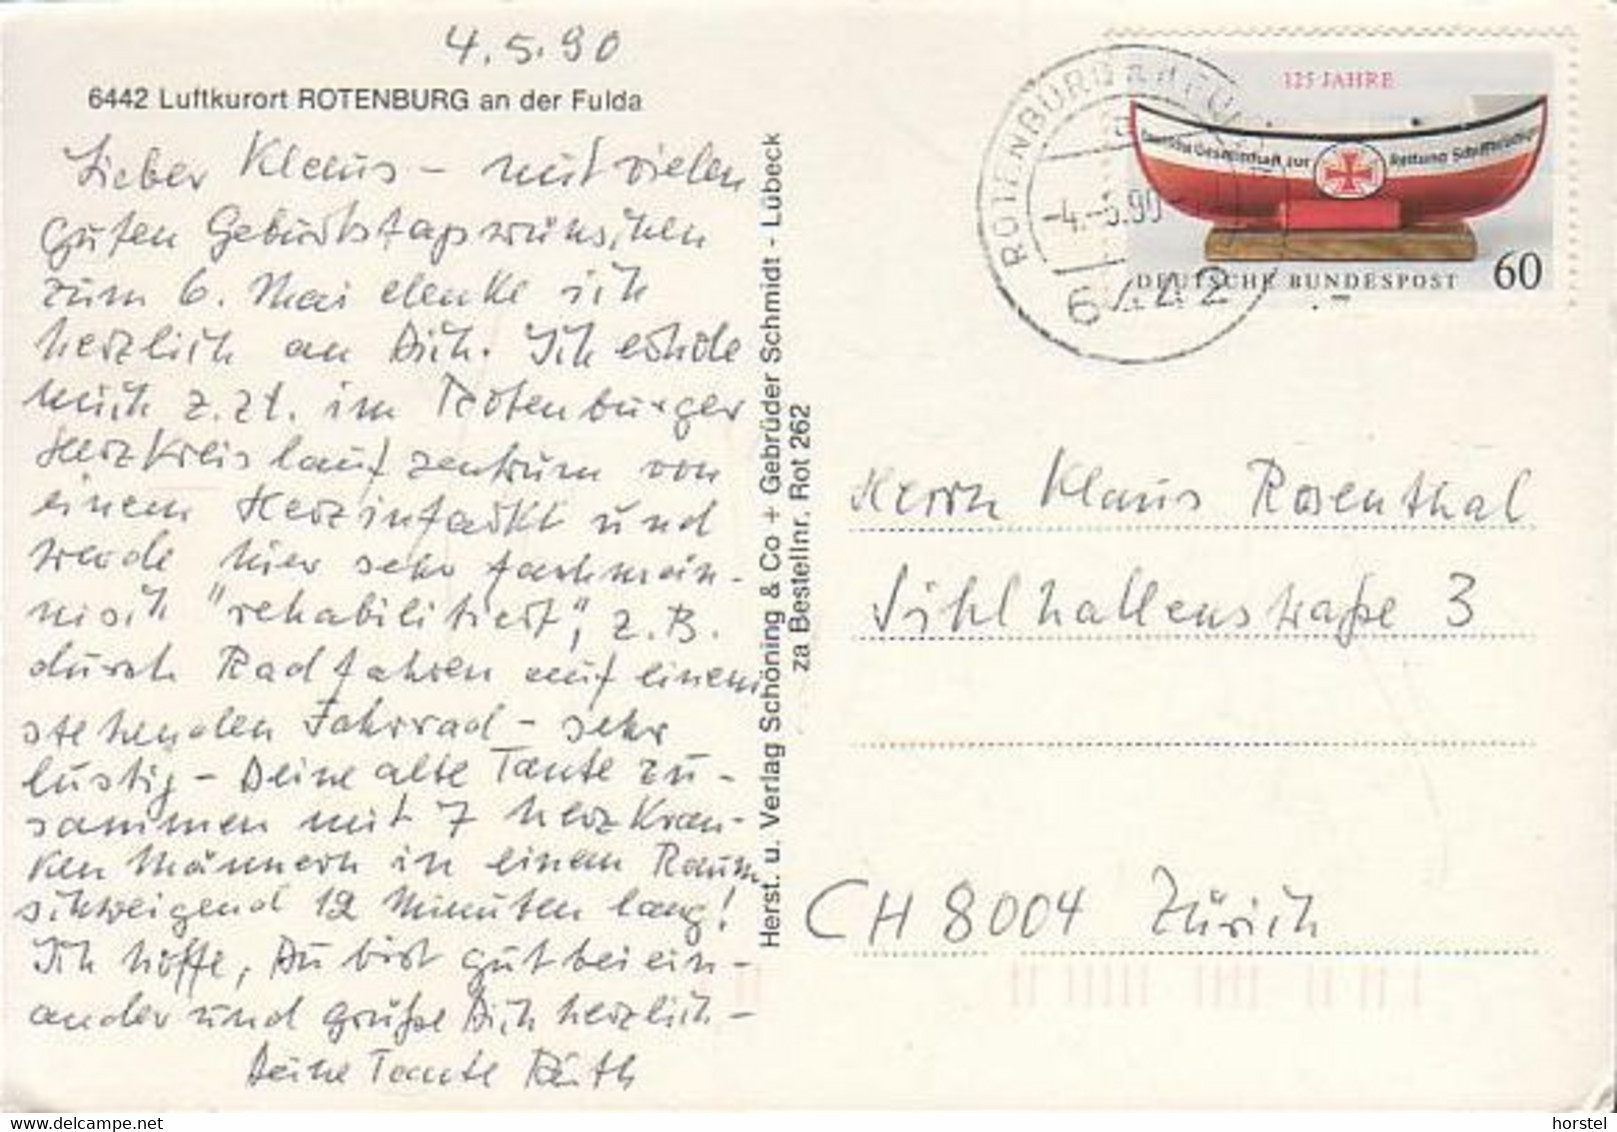 4.5.90
6442 Luftkurort ROTENBURG an der Fulda
Lieber Klaus – mit vielen
guten Geburtstagswünschen
zum 6. Mai denke ich
herzlich an Dich. Ich erhole
mich z.Zt. im Rotenburger
Herzkreislaufzentrum von
einem Herzinfarkt und
werde hier sehr fachmän-
nisch "rehabilitiert", z.B.
durch Radfahren auf einem
stehenden Fahrrad – sehr
lustig – Deine alte Tante zu-
sammen mit 7 herzkran-
ken Männern in einem Raum
schweigend 12 Minuten lang!
Ich hoffe, Du bist gut bei ein-
ander und grüße Dich herzlich –
Deine Tante Ruth
Herst. u. Verlag Schöning & Co + Gebrüder Schmidt - Lübeck
za Bestellnr. Rot 262
ROTENBURG a d FU
-4.-5.90
6442
125 JAHRE
Deutsche Gesellschaft zur Rettung Schiffbrüchiger
DEUTSCHE BUNDESPOST 60
Herrn Klaus Rosenthal
Sihlhallenstraße 3
CH 8004 Zürich
delcampe.net
horstel